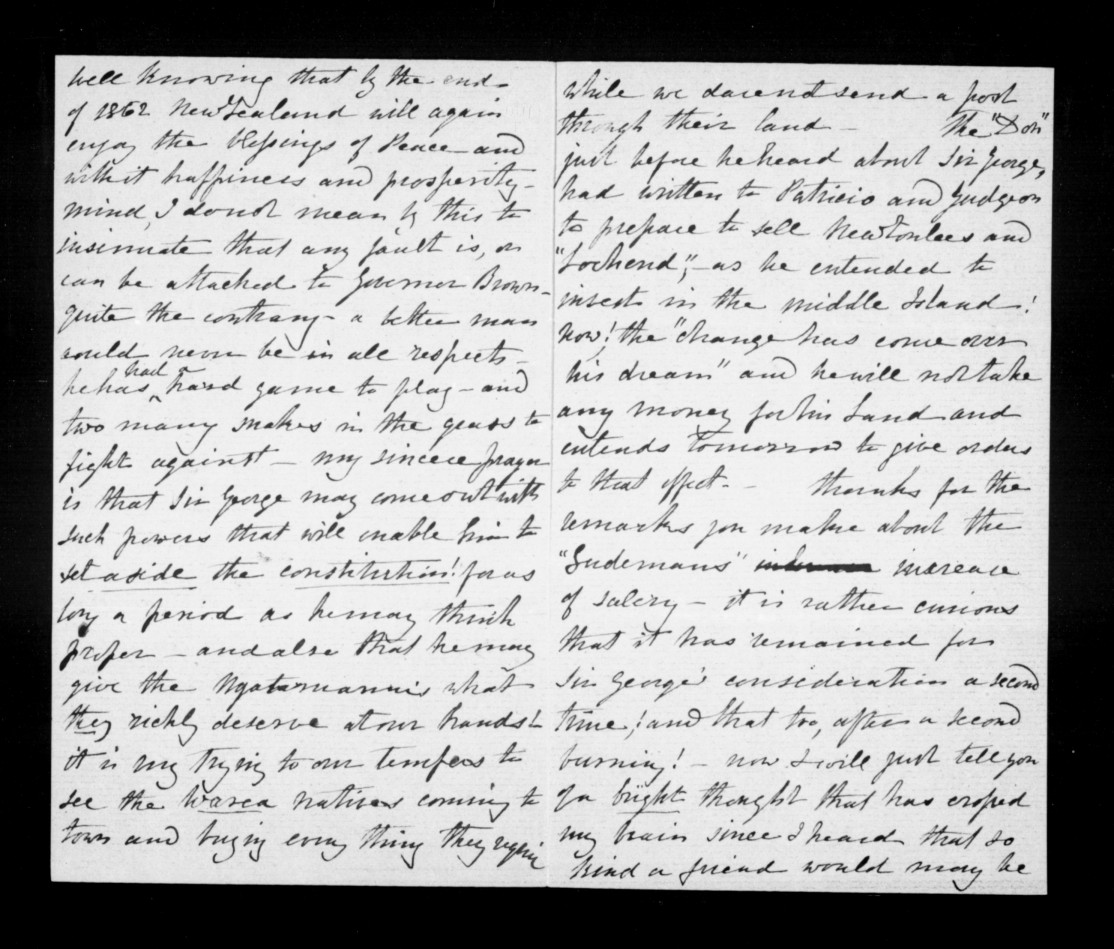 well knowing that by the end
of 1862 New Zealand will again
enjoy the blessings of Peace and
with it happiness and prosperity -
mind, I do not mean by this to
insinuate that any fault is, or
can be attached to Governor Brown -
quite the contrary - a better man
could never be in all respects -
he has had hard game to play - and
two many snakes in the grass to
fight against - my sincere prayer
is that Sir George may come out with
such powers that will enable him to
set aside the constitution! for as
long a period as he may think
proper - and also that he may
give the Ngatimaru's what
they richly deserve at our hands!
it is very trying to our tempers to
see the Warea natives coming to
town and buying every thing they require
while we dare not send a post
through their land - The "Don"
just before he heard about Sir George,
had written to Patricio and Gudgeon
to prepare to sell Newtonlees and
"Lochend", - as he entended to
invest in the middle Island!
now! the "change has come over
his dream" and he will not take
any money for his Land and
entends tomorrow to give orders
to that effect - thanks for the
remarks you make about the
"Gudemans" increase
of salery - it is rather curious
that it has remained for
Sir George's consideration a second
time! and that too, after a second
burning! - now I will just tell you
of a bright thought that has crossed
my brain since I heard that so
kind a friend would may be